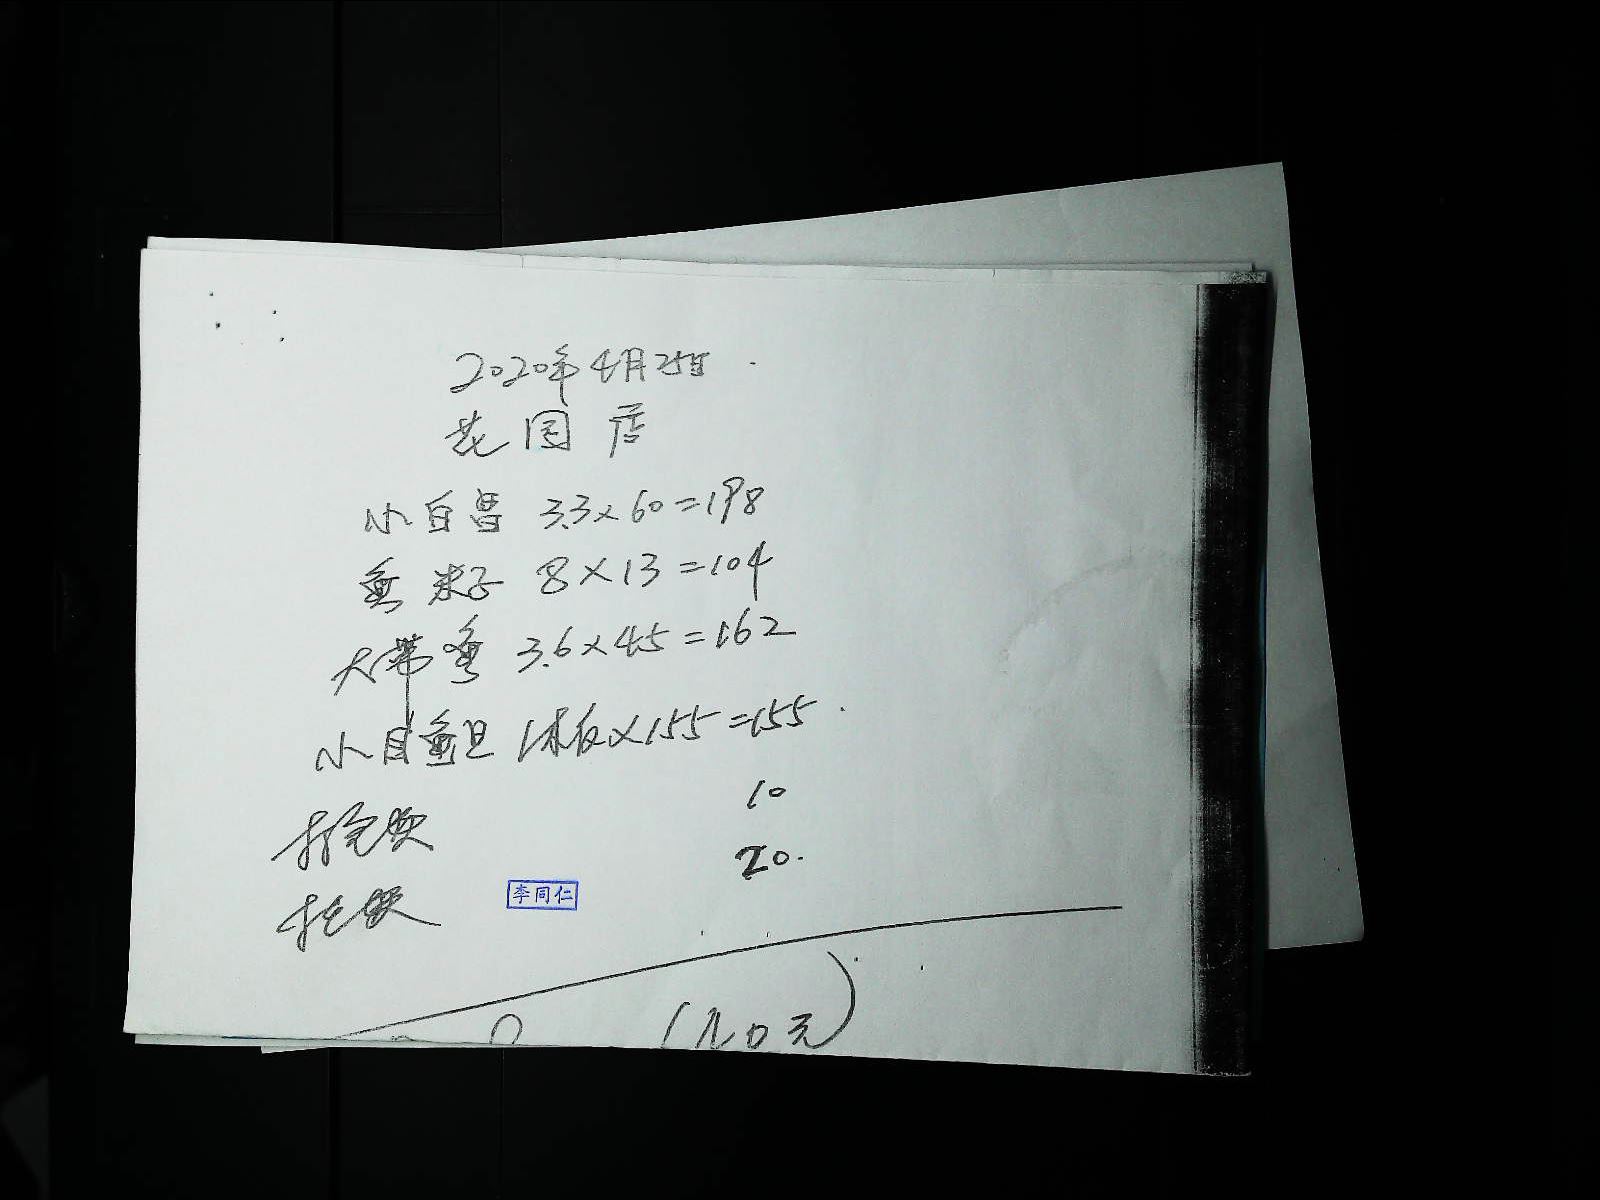 2020年4月25日
花园店
小白昌 3.3×60=198
鱼米子 8×13=104
大带鱼 3.6×45=162
小目鱼旦 1板×155=155
打包费 10
托费 20.
李同仁
元)